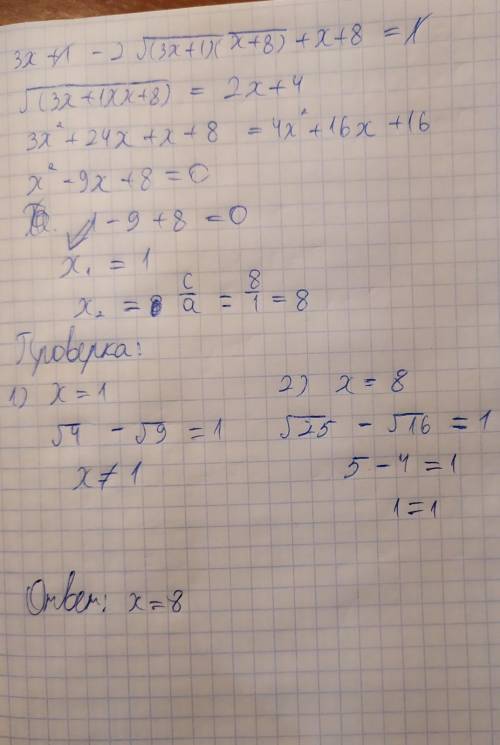 3x + 1 - 2√((3x+1)(x+8)) + x+8 = 1
√((3x+1)(x+8)) = 2x+4
3x² + 24x + x + 8 = 4x² + 16x + 16
x² - 9x + 8 = 0
1 - 9 + 8 = 0
x₁ = 1
x₂ = c/a = 8/1 = 8
Проверка:
1) x = 1 2) x = 8
√4 - √9 = 1 √25 - √16 = 1
x ≠ 1 5 - 4 = 1
1 = 1
Ответ: x = 8